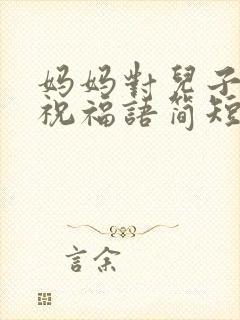 妈妈對兒子
祝福語简短
言余